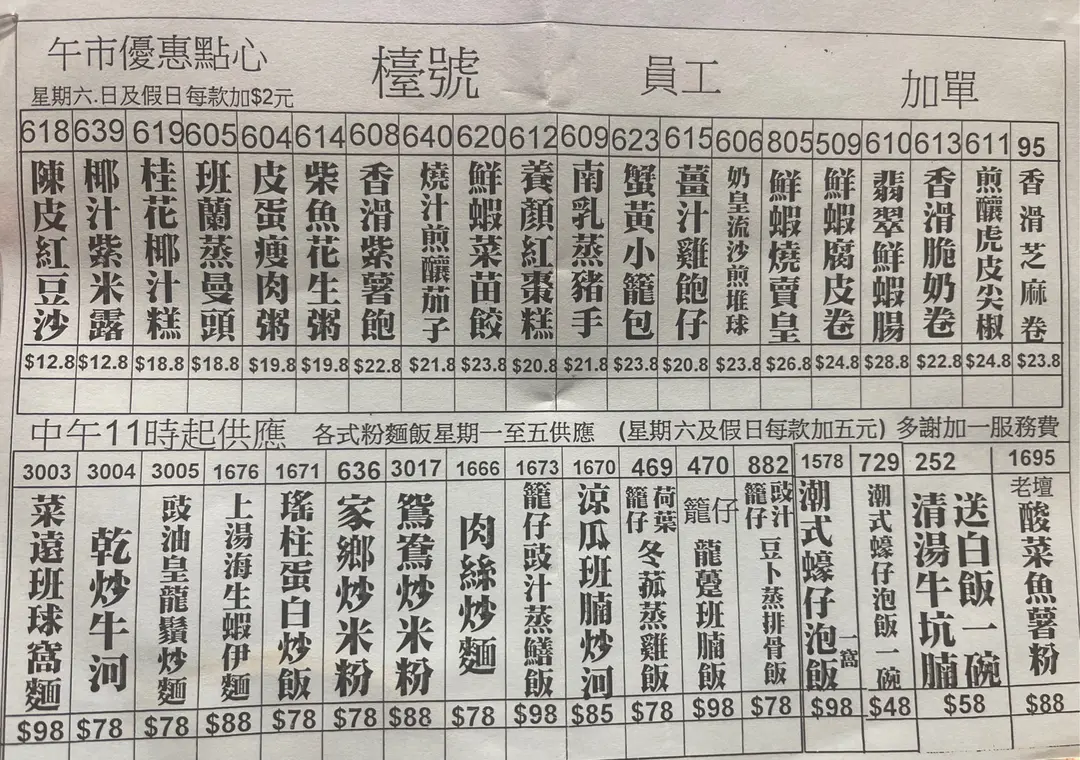 午市優惠點心
檯號
員工
加單
星期六.日及假日每款加$2元
618 639 619 605 604 614 608 640 620 612 609 623 615 606 805 509 610 613 611 95
陳皮紅豆沙
椰汁紫米露
桂花椰汁糕
班蘭蒸曼頭
皮蛋瘦肉粥
柴魚花生粥
香滑紫薯飽
燒汁煎釀茄子
鮮蝦菜苗餃
養顏紅棗糕
南乳蒸豬手
蟹黃小籠包
薑汁雞飽仔
奶皇流沙煎堆球
鮮蝦燒賣皇
鮮蝦腐皮卷
翡翠鮮蝦腸
香滑脆奶卷
煎釀虎皮尖椒
香滑芝麻卷
$12.8 $12.8 $18.8 $18.8 $19.8 $19.8 $22.8 $21.8 $23.8 $20.8 $21.8 $23.8 $20.8 $23.8 $26.8 $24.8 $28.8 $22.8 $24.8 $23.8
中午11時起供應 各式粉麵飯星期一至五供應 (星期六及假日每款加五元) 多謝加一服務費
3003 3004 3005 1676 1671 636 3017 1666 1673 1670 469 470 882 1578 729 252 1695
菜遠班球窩麵
乾炒牛河
豉油皇龍鬚炒麵
上湯海生蝦伊麵
瑤柱蛋白炒飯
家鄉炒米粉
鴛鴦炒米粉
肉絲炒麵
籠仔豉汁蒸鱔飯
涼瓜班腩炒河
籠仔荷葉冬菰蒸雞飯
籠仔龍躉班腩飯
籠仔豉汁豆卜蒸排骨飯
潮式蠔仔泡飯一窩
潮式蠔仔泡飯一碗
清湯牛坑腩
送白飯一碗
老壇酸菜魚薯粉
$98 $78 $78 $88 $78 $78 $88 $78 $98 $85 $78 $98 $78 $98 $48 $58 $88